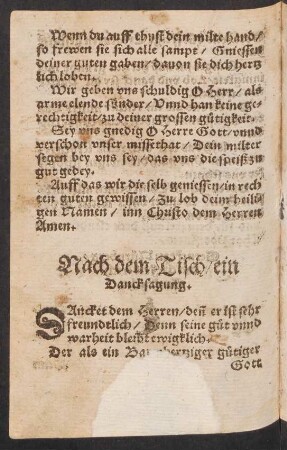 Wenn du auff thust dein milte hand/
so frewen sie sich alle sampt / Gniessen
deiner guten gaben / dauon sie dich hertz
lich loben.
Wir geben vns schuldig O Herr / als
arme elende sünder / Vnnd han keine ge-
rechtigkeit / zu deiner grossen gütigkeit.
Sey vns gnedig O Herre Gott / vnnd
verschon vnser missethat / Dein milter
segen bey vns sey / das vns die speiß zu
gut gedey.
Auff das wir die selb geniessen / in rech
ten guten gewissen / Zu lob deim heili-
gen Namen / inn Christo dem Herren
Amen.
Nach dem Tisch / ein
Dancksagung.
DAncket dem Herren / deñ er ist sehr
freundtlich / Denn seine güt vnnd
warheit bleibt ewigklich.
Der als ein Barmhertziger gütiger
Gott